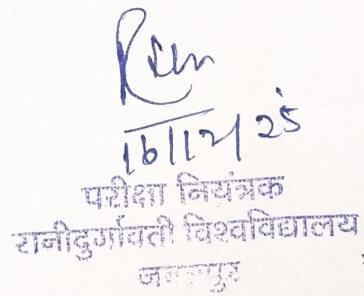 16/12/25
परीक्षा नियंत्रक
रानीदुर्गावती विश्वविद्यालय
जबलपुर